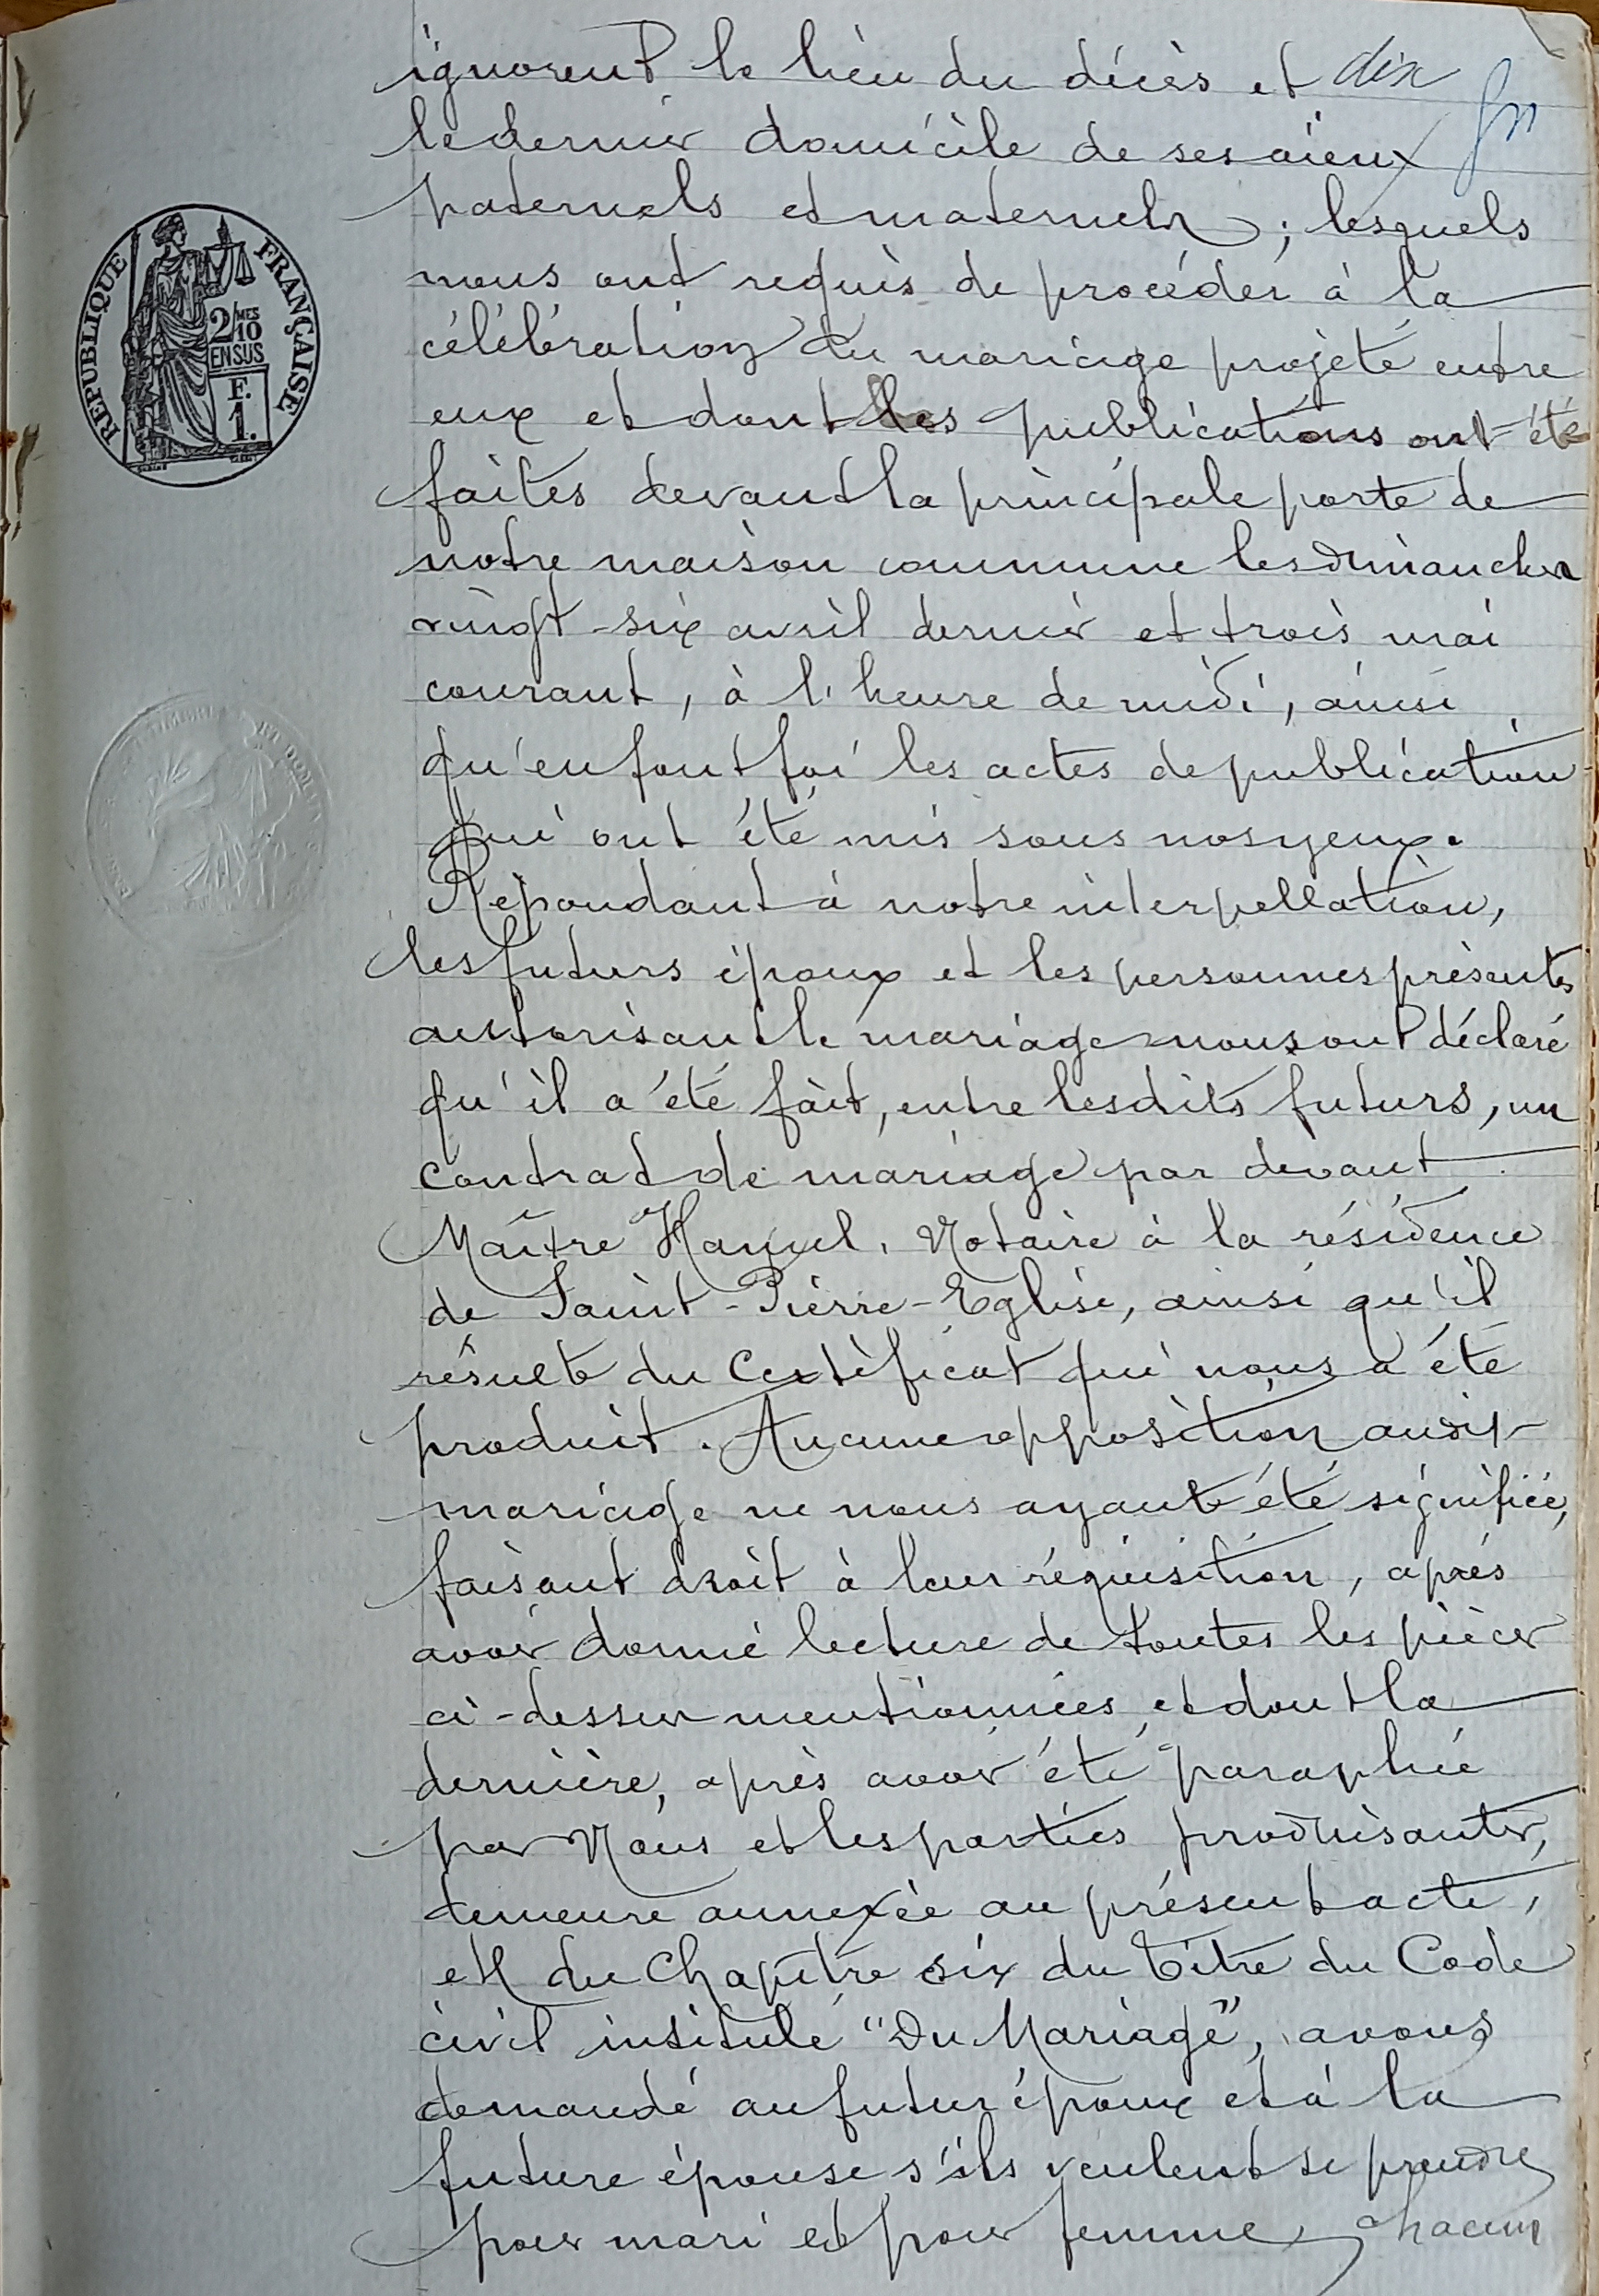 ignorent le lieu du décès et dix
le dernier domicile de ses aïeux
paternels et maternels ; lesquels
nous ont requis de procéder à la
célébration du mariage projeté entre
eux et dont les publications ont été
faites devant la principale porte de
notre maison commune les dimanches
vingt-six avril dernier et trois mai
courant, à l'heure de midi, ainsi
qu'en font foi les actes de publication
qui ont été mis sous nos yeux.
Répondant à notre interpellation,
les futurs époux et les personnes présentes
autorisant le mariage nous ont déclaré
qu'il a été fait, entre lesdits futurs, un
contrat de mariage par devant
Maître Hamel, Notaire à la résidence
de Saint-Pierre-Eglise, ainsi qu'il
résulte du Certificat qui nous a été
produit. Aucune opposition audit
mariage ne nous ayant été signifiée,
faisant droit à leur réquisition, après
avoir donné lecture de toutes les pièces
ci-dessus mentionnées et dont la
dernière, après avoir été paraphée
par Nous et les parties produisantes,
demeure annexée au présent acte,
et du Chapitre six du titre du Code
civil intitulé "Du Mariage", avons
demandé au futur époux et à la
future épouse s'ils veulent se prendre
pour mari et pour femme, chacun
REPUBLIQUE FRANÇAISE
2/MES
10
EN SUS
F.
1.